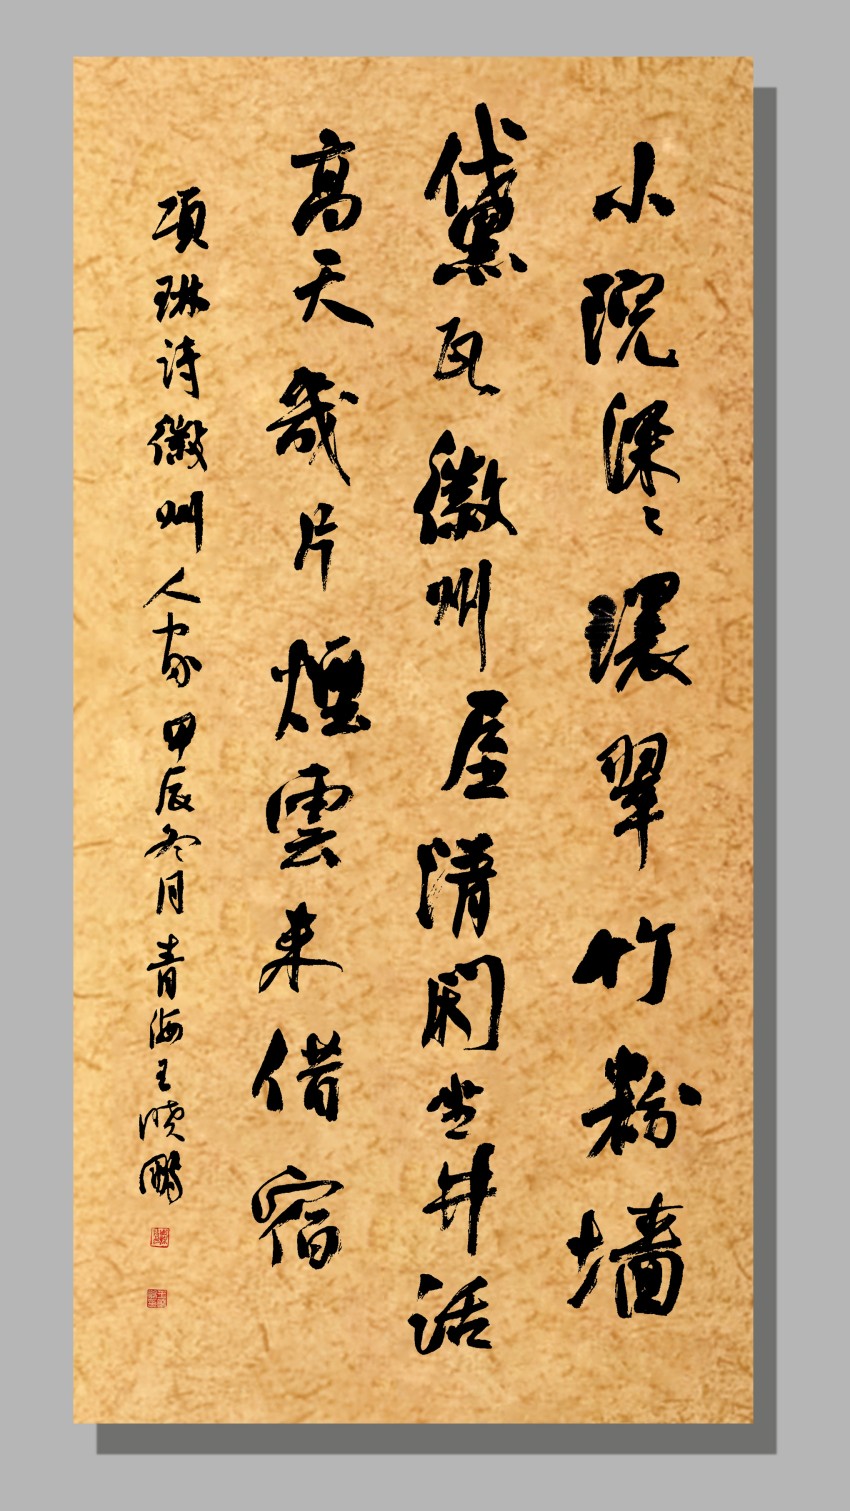 小院深々環翠竹粉墙
黛瓦徽州屋清閑坐井話
高天幾片煙雲来借宿
項琳詩徽州人家甲辰冬月青海王曉鵬